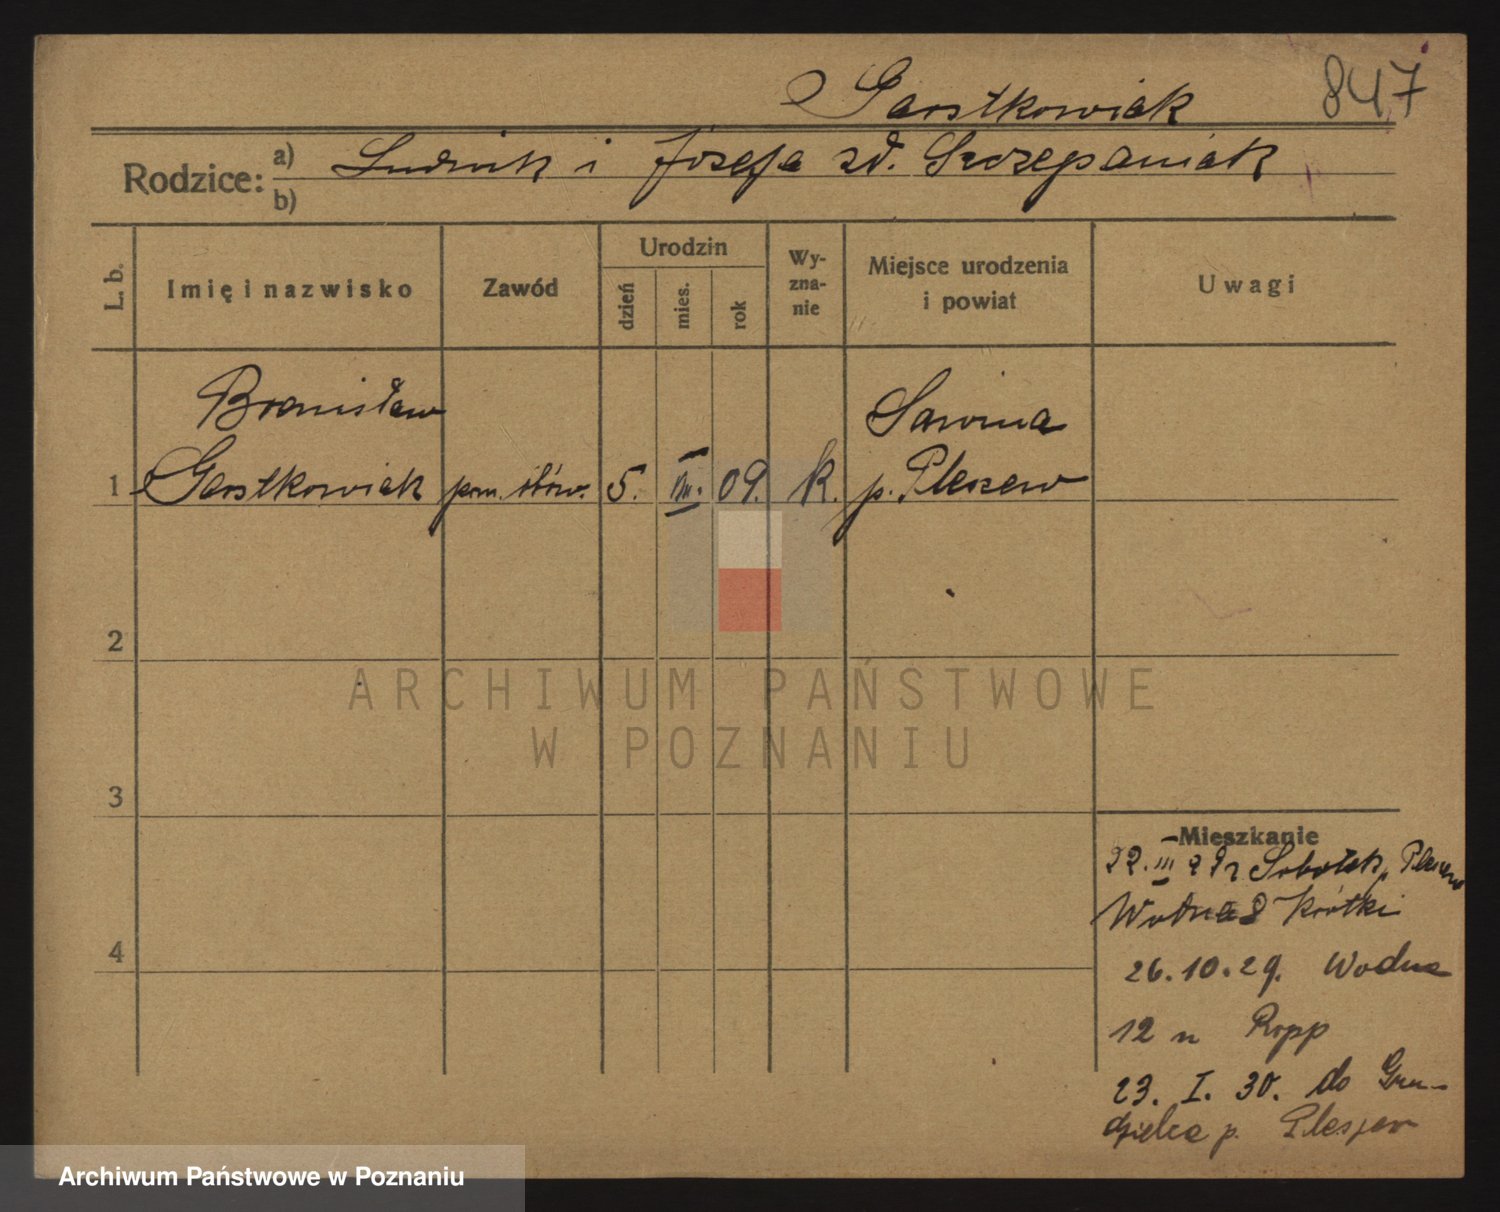 Garstkowiak 847
Rodzice: a) Ludwik i Józefa zd. Szczepaniak
b)
L. b.
Imię i nazwisko
Zawód
Urodzin
dzień
mies.
rok
Wy-
zna-
nie
Miejsce urodzenia
i powiat
Uwagi
Bronisław
Sowina
1 Garstkowiak pom. 5. VIII. 09. k. p. Pleszew
2
3
4
Mieszkanie
22. III 29 z Sobótek p. Pleszew
Wodna 8 Krótki
26.10.29. Wodna
12 u Ropp
23. I. 30. do Gru-
dzielca p. Pleszew
ARCHIWUM PAŃSTWOWE
W POZNANIU
Archiwum Państwowe w Poznaniu